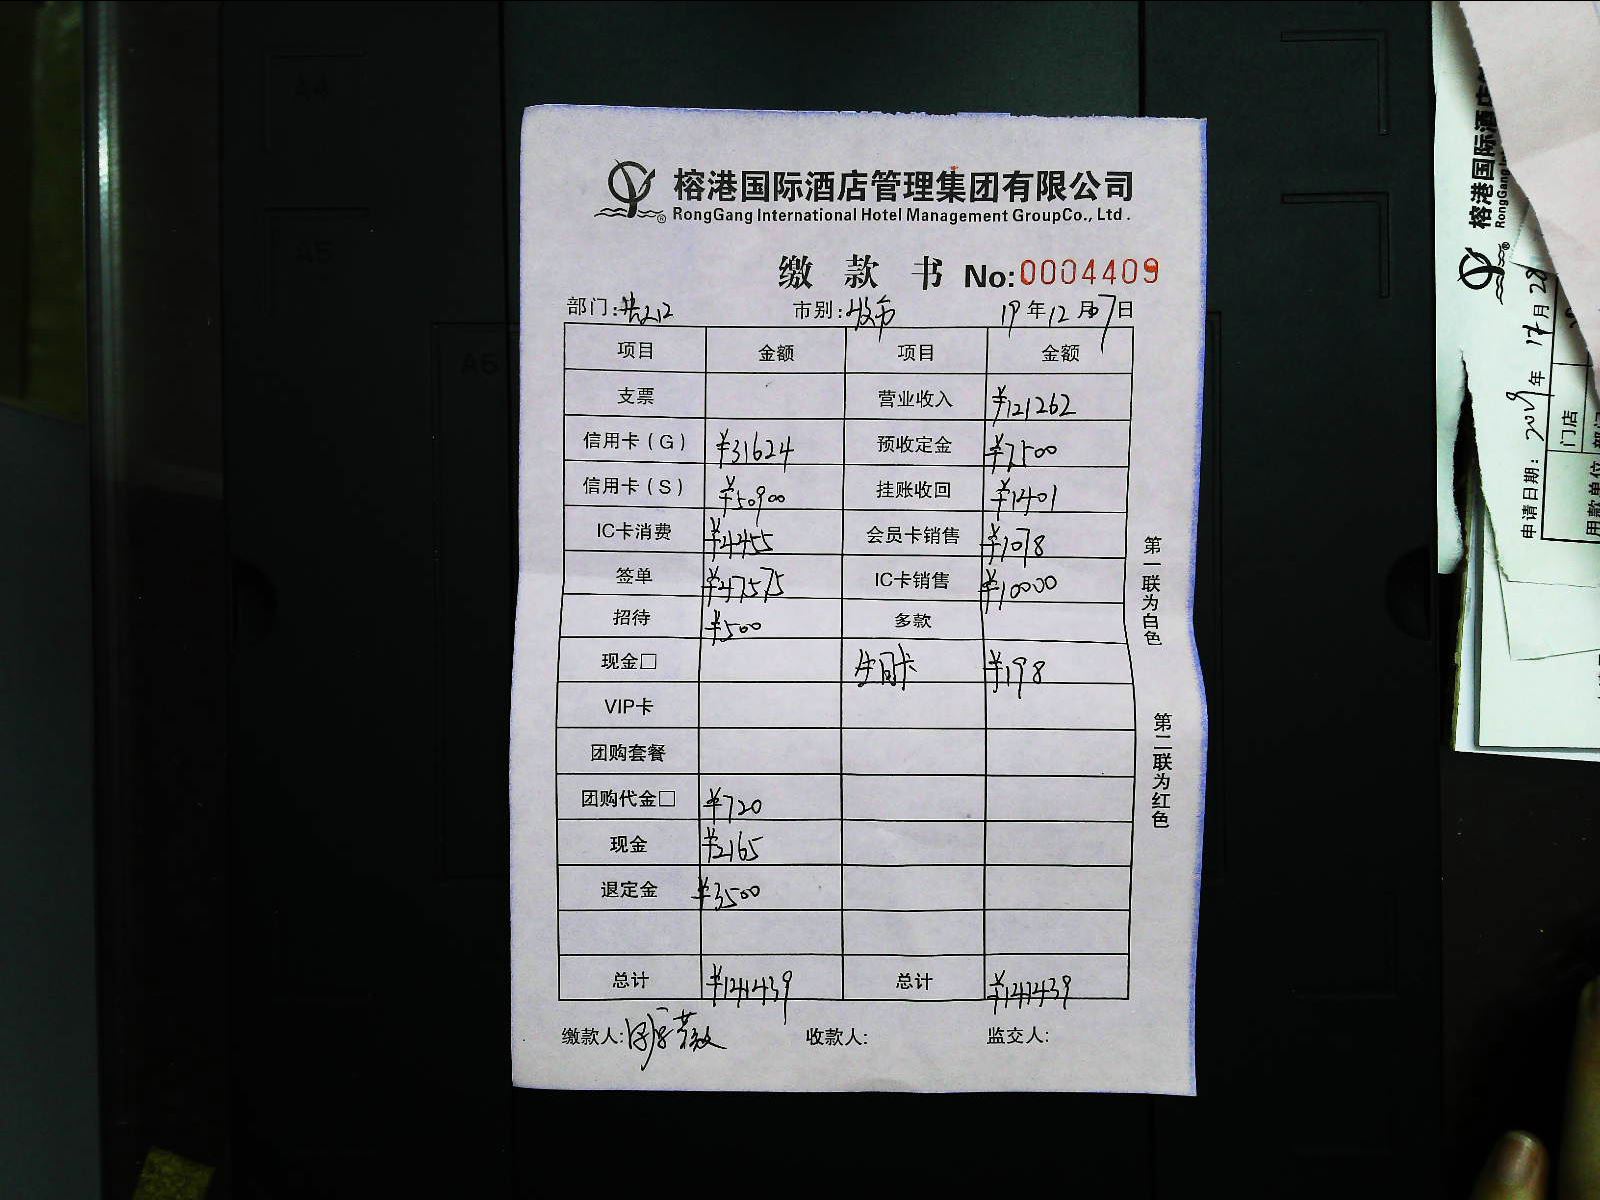 榕港国际酒店管理集团有限公司
RongGang International Hotel Management GroupCo., Ltd.
缴款书 No:0004409
部门: 市别: 19年12月7日
项目 金额 项目 金额
支票 营业收入 ¥121262
信用卡(G) ¥31624 预收定金 ¥7500
信用卡(S) ¥50900 挂账收回 ¥1401
IC卡消费 ¥4455 会员卡销售 ¥1078
签单 ¥47575 IC卡销售 ¥10000
招待 ¥500 多款
现金□ 生日卡 ¥198
VIP卡
团购套餐
团购代金□ ¥720
现金 ¥2165
退定金 ¥3500
总计 ¥141439 总计 ¥141439
缴款人: 收款人: 监交人:
第一联为白色
第二联为红色
榕港国际酒店
RongGang
申请日期: 2019年12月28
门店
用款单位
A4
A5
A6